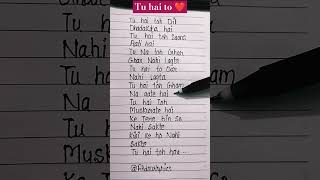 Tu hai to ❤️
Tu hai toh Dil
Dhadakta hai
Tu hai toh Saans
Aati hai
Tu Na toh Ghar
Ghar Nahi Lagta
Tu hai to Darr
Nahi Lagta
Tu hai toh Gham
Na aate hai
Tu hai Toh
Muskurate hai
Ke Tere bin Se
Nahi Sakte
Kisi Ke ho Nahi
Sakte
Tu hai toh hai...